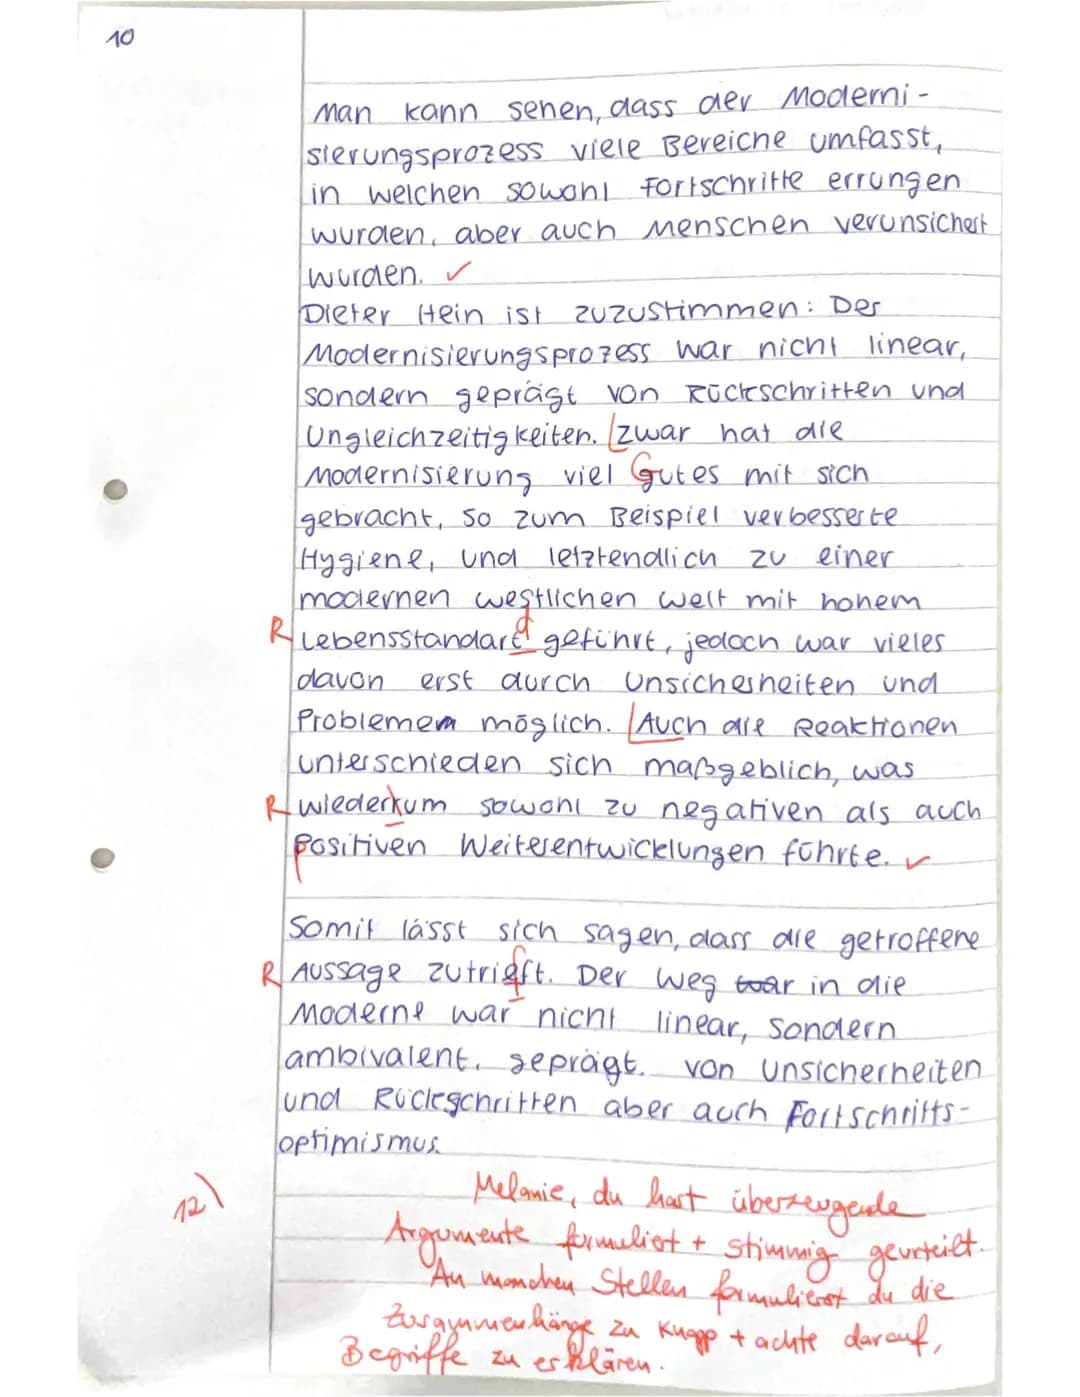 10
Man kann sehen, dass der Moderni-
sierungsprozess viele Bereiche umfasst,
in welchen sowohl Fortschritte errungen
wurden, aber auch Menschen verunsichert
wurden. ✓
Dieter Hein ist zuzustimmen: Der
Modernisierungsprozess war nicht linear,
sondern geprägt von Rückschritten und
Ungleichzeitigkeiten. Zwar hat die
Modernisierung viel Gutes mit sich
gebracht, so zum Beispiel verbesserte
Hygiene, und letztendlich zu einer
modernen westlichen Welt mit hohem
R Lebensstandard geführt, jedoch war vieles
davon erst durch Unsicherheiten und
Problemen möglich. Auch die Reaktionen
unterschieden sich maßgeblich, was
R wiederkum sowohl zu negativen als auch
positiven Weiterentwicklungen führte. ✓
Somit lässt sich sagen, dass die getroffene
R Aussage zutrifft. Der Weg war in die
Moderne war nicht linear, sondern
ambivalent, geprägt von Unsicherheiten
und Rückschritten aber auch Fortschritts-
optimismus.
12) Melanie, du hast überzeugende
Argumente formuliert + stimmig geurteilt.
An manchen Stellen formulierst du die
Zusammenhänge zu knapp + achte darauf,
Begriffe zu erklären.